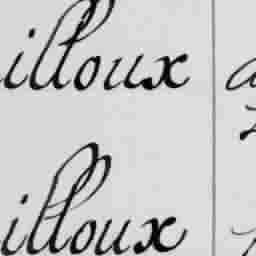 illoux
illoux